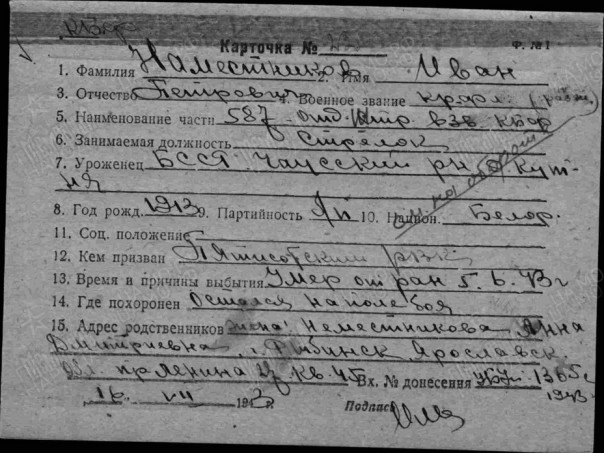 Карточка №
Ф. №1
1. Фамилия Наместников 2. Имя Иван
3. Отчество Петрович 4. Военное звание кр-ар.
5. Наименование части 587 отд. взв.
6. Занимаемая должность Стрелок
7. Уроженец БССР Чаусский р-н д. Кут-
ня
см на обороте
8. Год рожд. 1913 9. Партийность 10. Национ. Белор.
11. Соц. положение
12. Кем призван РВК
13. Время и причины выбытия Умер от ран 5.6.43г
14. Где похоронен Остался на поле боя
15. Адрес родственников жена: Неместникова Анна
Дмитриевна, г. Рыбинск Ярославск.
обл. пр Ленина кв. 45 Вх. № донесения 1365с
1943
16 VII 1943 г.
Подпись